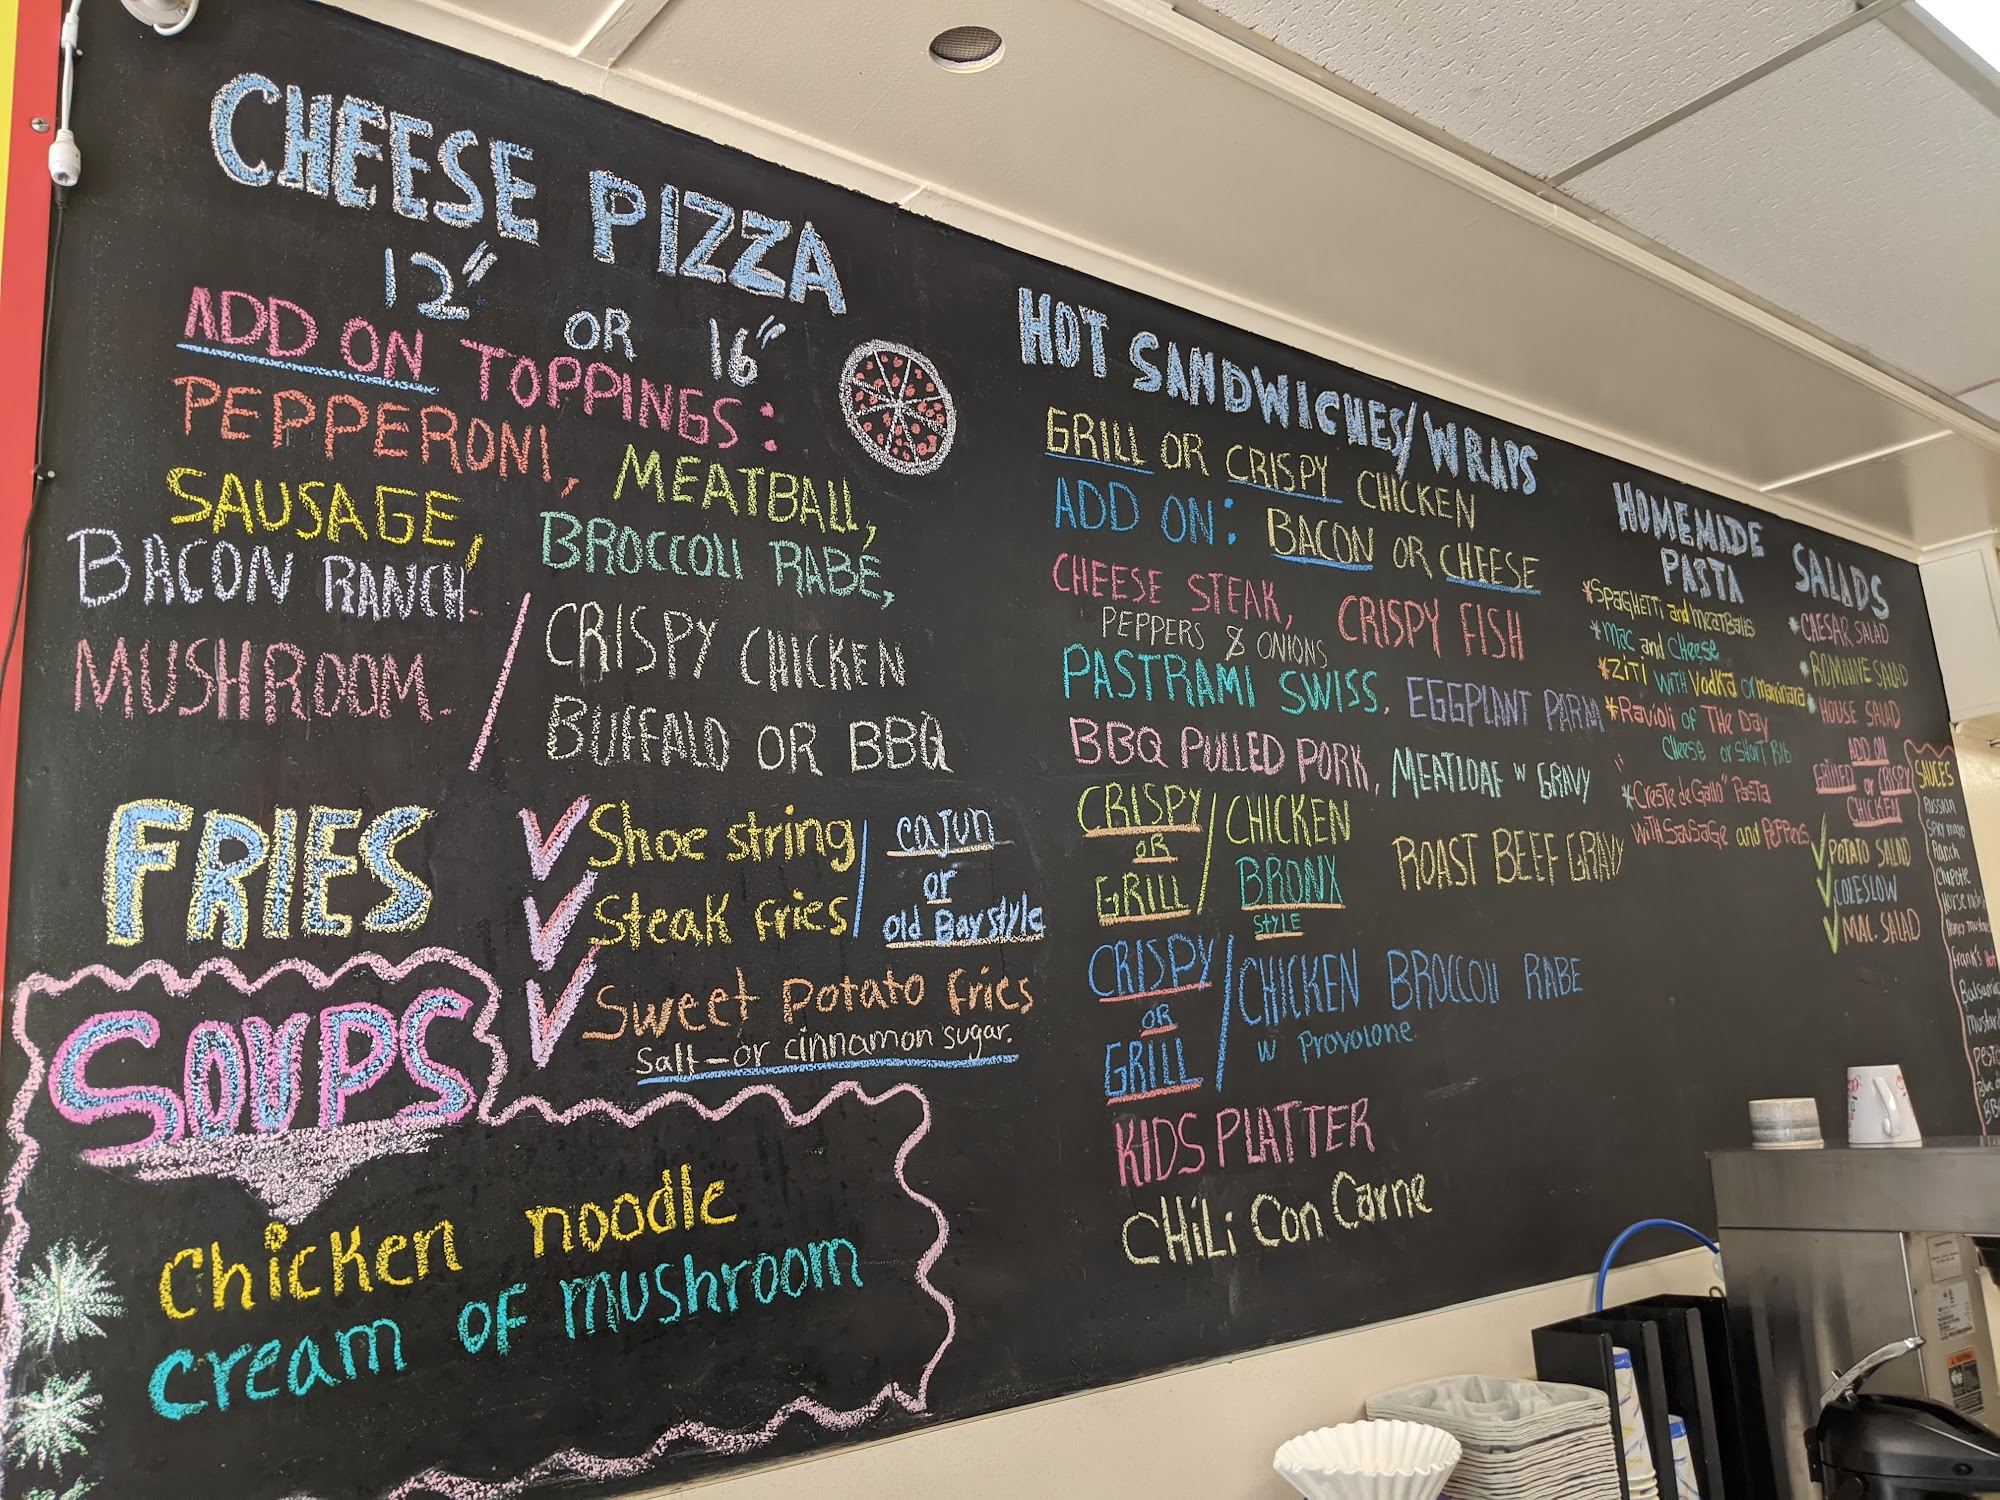 CHEESE PIZZA
12" OR 16"
ADD ON TOPPINGS:
PEPPERONI, MEATBALL,
SAUSAGE, BROCCOLI RABE,
BACON RANCH
MUSHROOM / CRISPY CHICKEN
BUFFALO OR BBQ
FRIES
Shoe string / cajun
or
Steak Fries / Old Bay style
Sweet Potato Fries
Salt-or cinnamon sugar.
SOUPS
Chicken noodle
cream of mushroom
HOT SANDWICHES/WRAPS
GRILL OR CRISPY CHICKEN
ADD ON: BACON OR CHEESE
CHEESE STEAK, CRISPY FISH
PEPPERS & ONIONS
PASTRAMI SWISS, EGGPLANT PARM
BBQ PULLED PORK, MEATLOAF W GRAVY
CRISPY OR GRILL / CHICKEN BRONX STYLE
ROAST BEEF GRAVY
CRISPY OR GRILL / CHICKEN BROCCOLI RABE
W Provolone
KIDS PLATTER
CHiLi Con Carne
HOMEMADE
PASTA
*Spaghetti and meatballs
*Mac and cheese
*ZiTi with Vodka or marinara
*Ravioli of The Day
Cheese or Short Rib
*"Creste de Gallo" Pasta
with Sausage and Peppers
SALADS
*CAESAR SALAD
*ROMAINE SALAD
*HOUSE SALAD
ADD ON
GRILLED or CRISPY
CHICKEN
POTATO SALAD
COLESLOW
MAC. SALAD
SAUCES
Russian
Spicy mayo
Ranch
Chipotle
Honey
Frank's Hot
Balsamic
Mustard